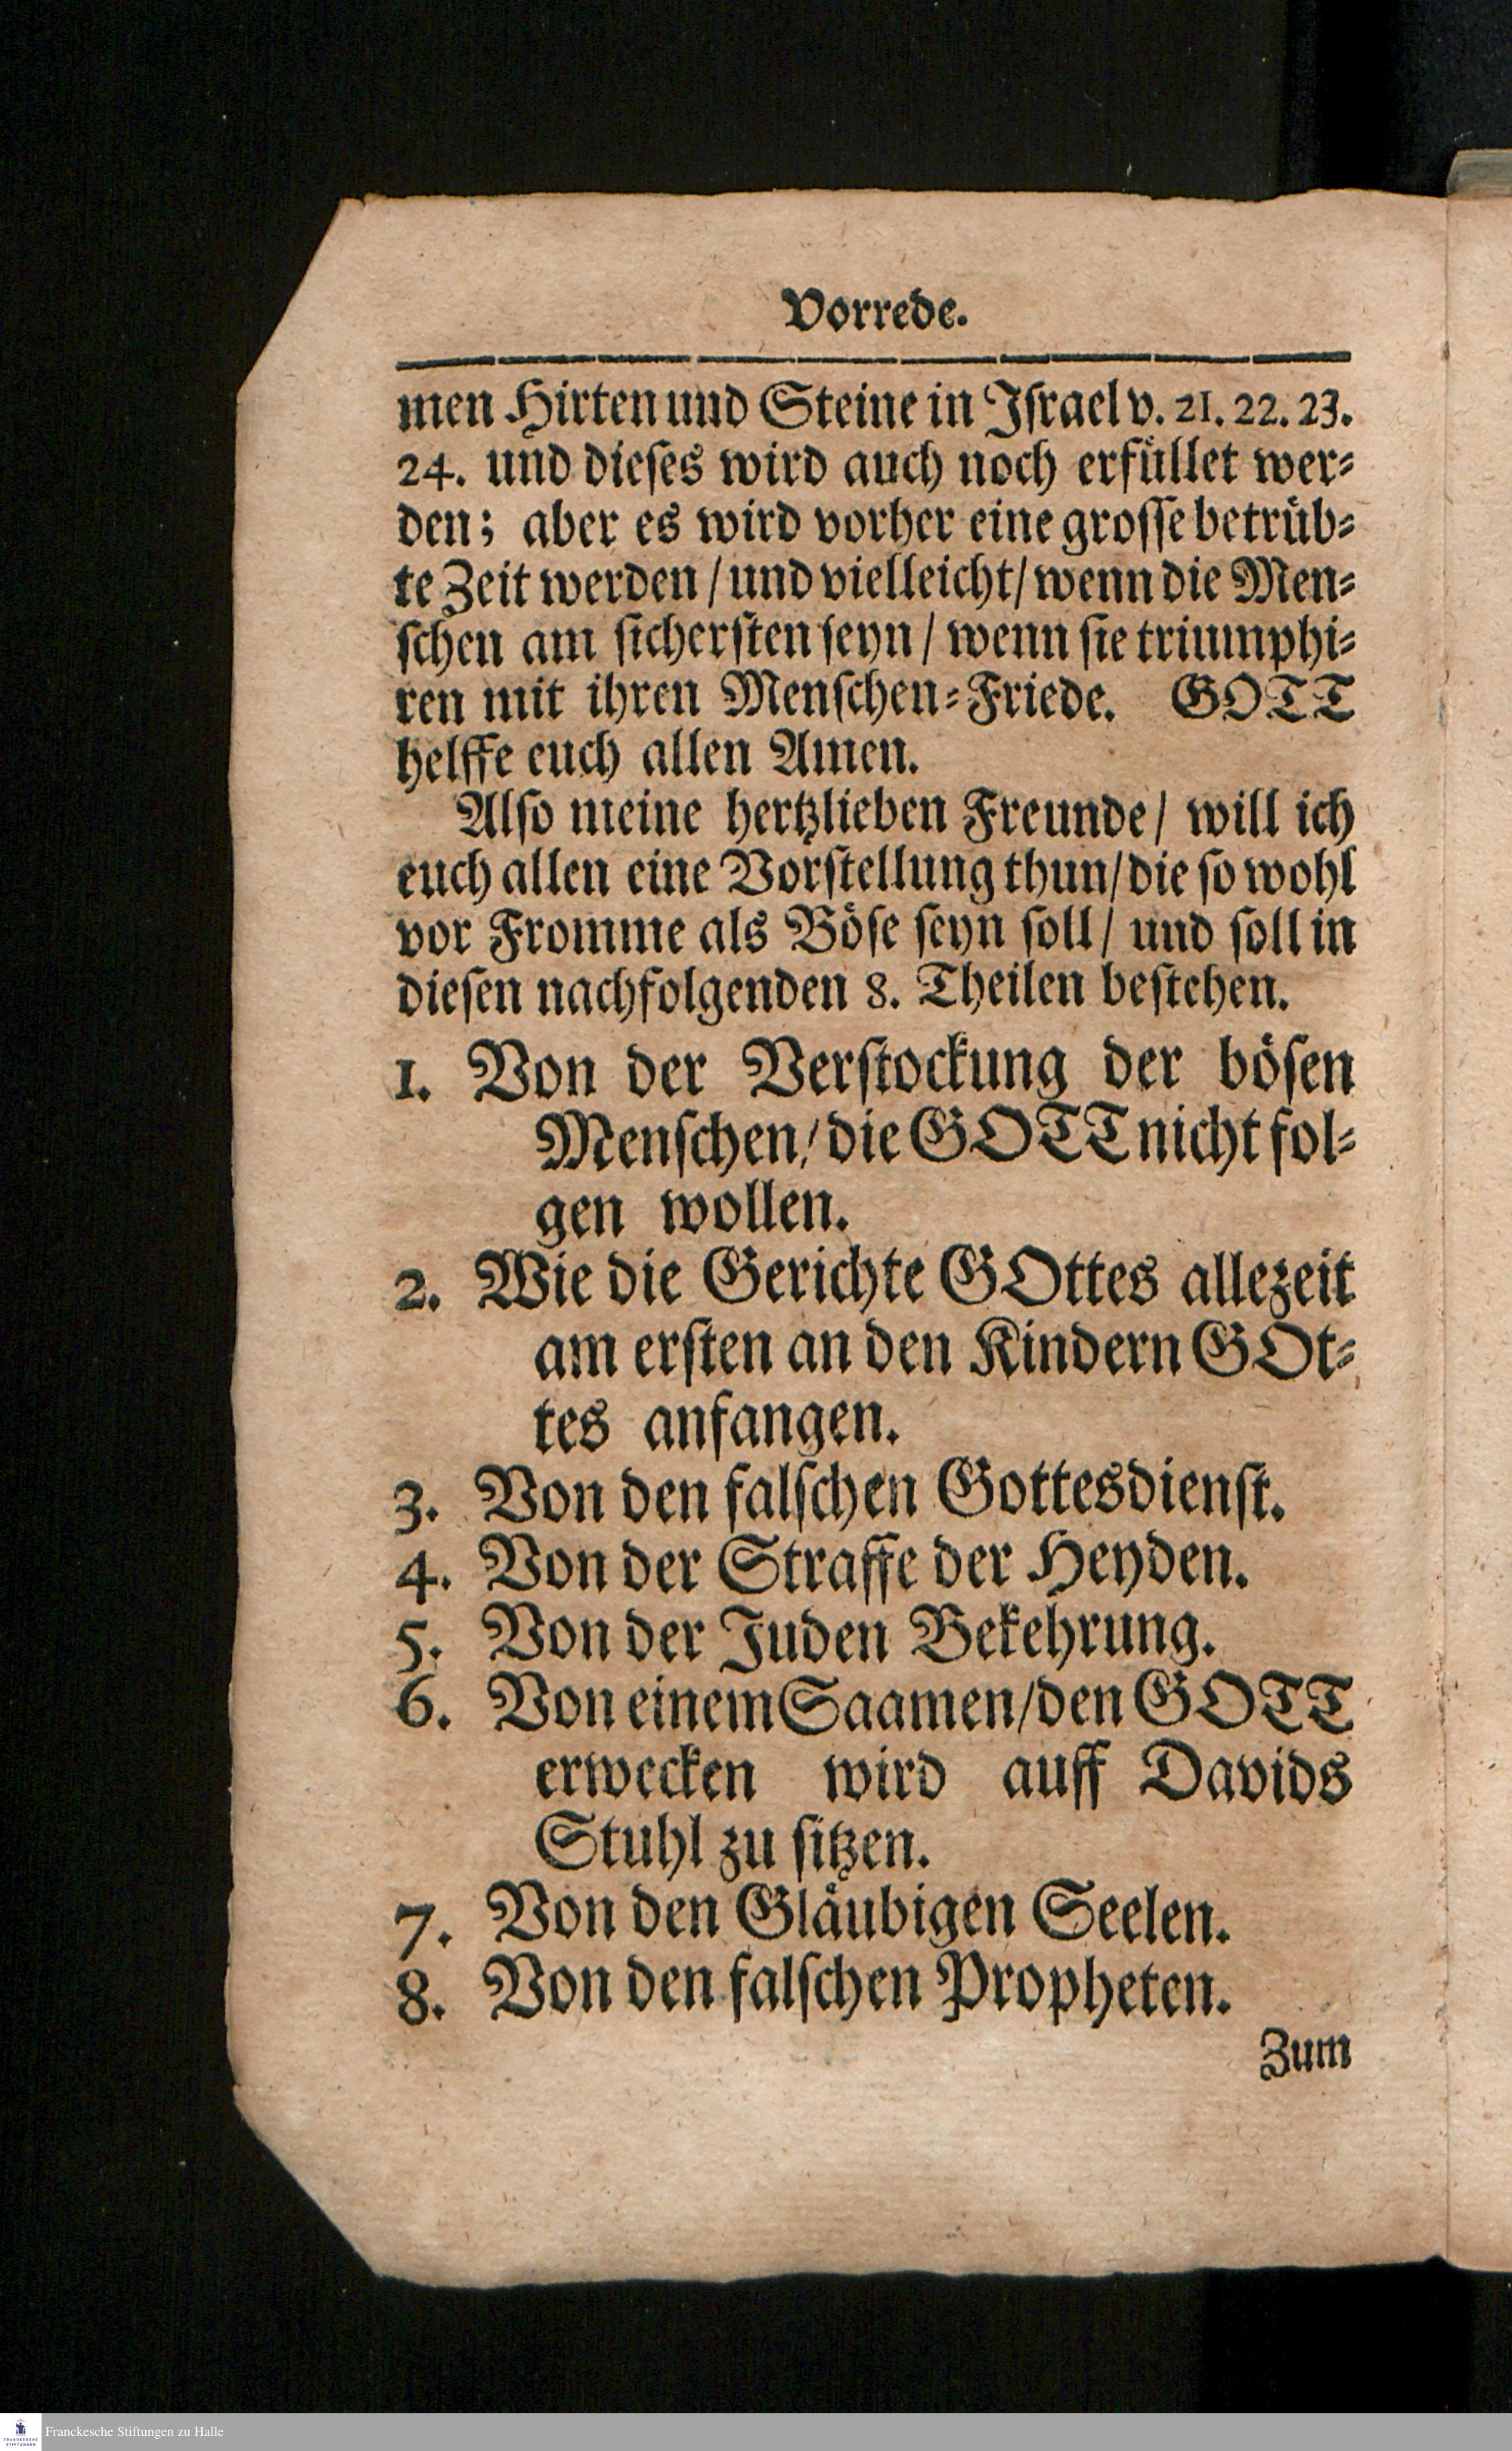 Vorrede.
men Hirten und Steine in Iſrael v. 21. 22. 23.
24. und dieſes wird auch noch erfüllet wer⸗
den; aber es wird vorher eine groſſe betrüb⸗
te Zeit werden / und vielleicht / wenn die Men⸗
ſchen am ſicherſten ſeyn / wenn ſie triumphi⸗
ren mit ihren Menſchen⸗Friede. GOTT
helffe euch allen Amen.
Alſo meine hertzlieben Freunde / will ich
euch allen eine Vorſtellung thun / die ſo wohl
vor Fromme als Böſe ſeyn ſoll / und ſoll in
dieſen nachfolgenden 8. Theilen beſtehen.
1. Von der Verſtockung der böſen
Menſchen / die GOTT nicht fol⸗
gen wollen.
2. Wie die Gerichte GOttes allezeit
am erſten an den Kindern GOt⸗
tes anfangen.
3. Von den falſchen Gottesdienſt.
4. Von der Straffe der Heyden.
5. Von der Juden Bekehrung.
6. Von einem Saamen / den GOTT
erwecken wird auff Davids
Stuhl zu ſitzen.
7. Von den Gläubigen Seelen.
8. Von den falſchen Propheten.
Zum
Franckesche Stiftungen zu Halle
FRANCKESCHE
STIFTUNGEN